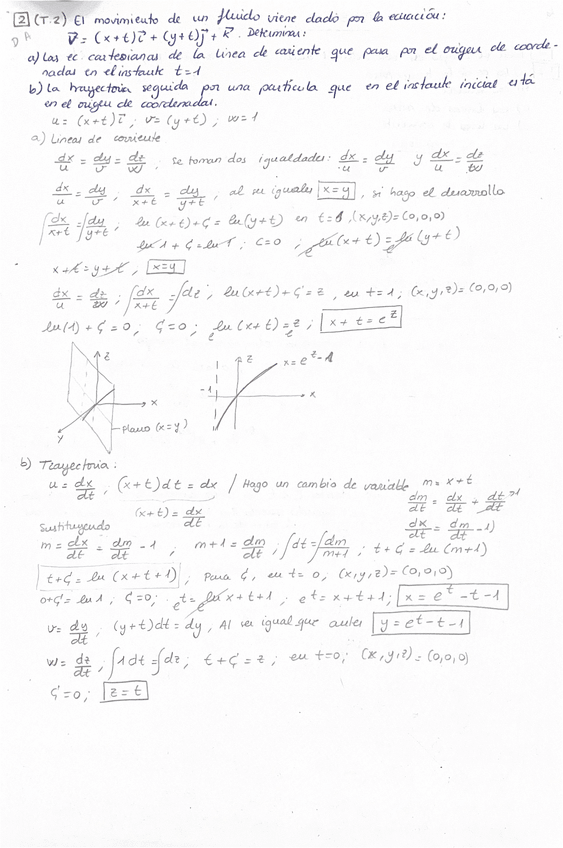 2 (T.2) El movimiento de un fluido viene dado por la ecuación:
DA
V⃗ = (x+t)i⃗ + (y+t)j⃗ + k⃗. Determinar:
a) Las ec. cartesianas de la línea de corriente que pasa por el origen de coorde-
nadas en el instante t=1
b) La trayectoria seguida por una partícula que en el instante inicial está
en el origen de coordenadas.
u = (x+t)i⃗ ; v = (y+t) ; w = 1
a) Líneas de corriente
dx/u = dy/v = dz/w, se toman dos igualdades: dx/u = dy/v y dx/u = dz/w
dx/u = dy/v, dx/x+t = dy/y+t, al ser iguales x=y, si hago el desarrollo
∫dx/x+t = ∫dy/y+t; ln(x+t)+C = ln(y+t) en t=1, (x,y,z)=(0,0,0)
ln 1 + C = ln 1; C=0; e ln(x+t) = e ln(y+t)
x+t = y+t, x=y
dx/u = dz/w; ∫dx/x+t = ∫dz; ln(x+t)+C = z, en t=1; (x,y,z)=(0,0,0)
ln(1)+C = 0; C=0; e ln(x+t) = e z; x+t = e^z
z
x
y
Plano (x=y)
z
x = e^z - 1
-1
x
b) Trayectoria:
u = dx/dt, (x+t)dt = dx / Hago un cambio de variable m = x+t
(x+t) = dx/dt
dm/dt = dx/dt + dt/dt 1
dx/dt = dm/dt - 1)
Sustituyendo
m = dx/dt = dm/dt - 1, m+1 = dm/dt, ∫dt = ∫dm/m+1; t+C = ln(m+1)
t+C = ln(x+t+1), para C, en t=0, (x,y,z)=(0,0,0)
0+C = ln 1, C=0; e t = e ln x+t+1; e^t = x+t+1; x = e^t - t - 1
v = dy/dt, (y+t)dt = dy, Al ser igual que antes y = e^t - t - 1
w = dz/dt, ∫1dt = ∫dz; t+C = z; en t=0; (x,y,z)=(0,0,0)
C=0; z=t